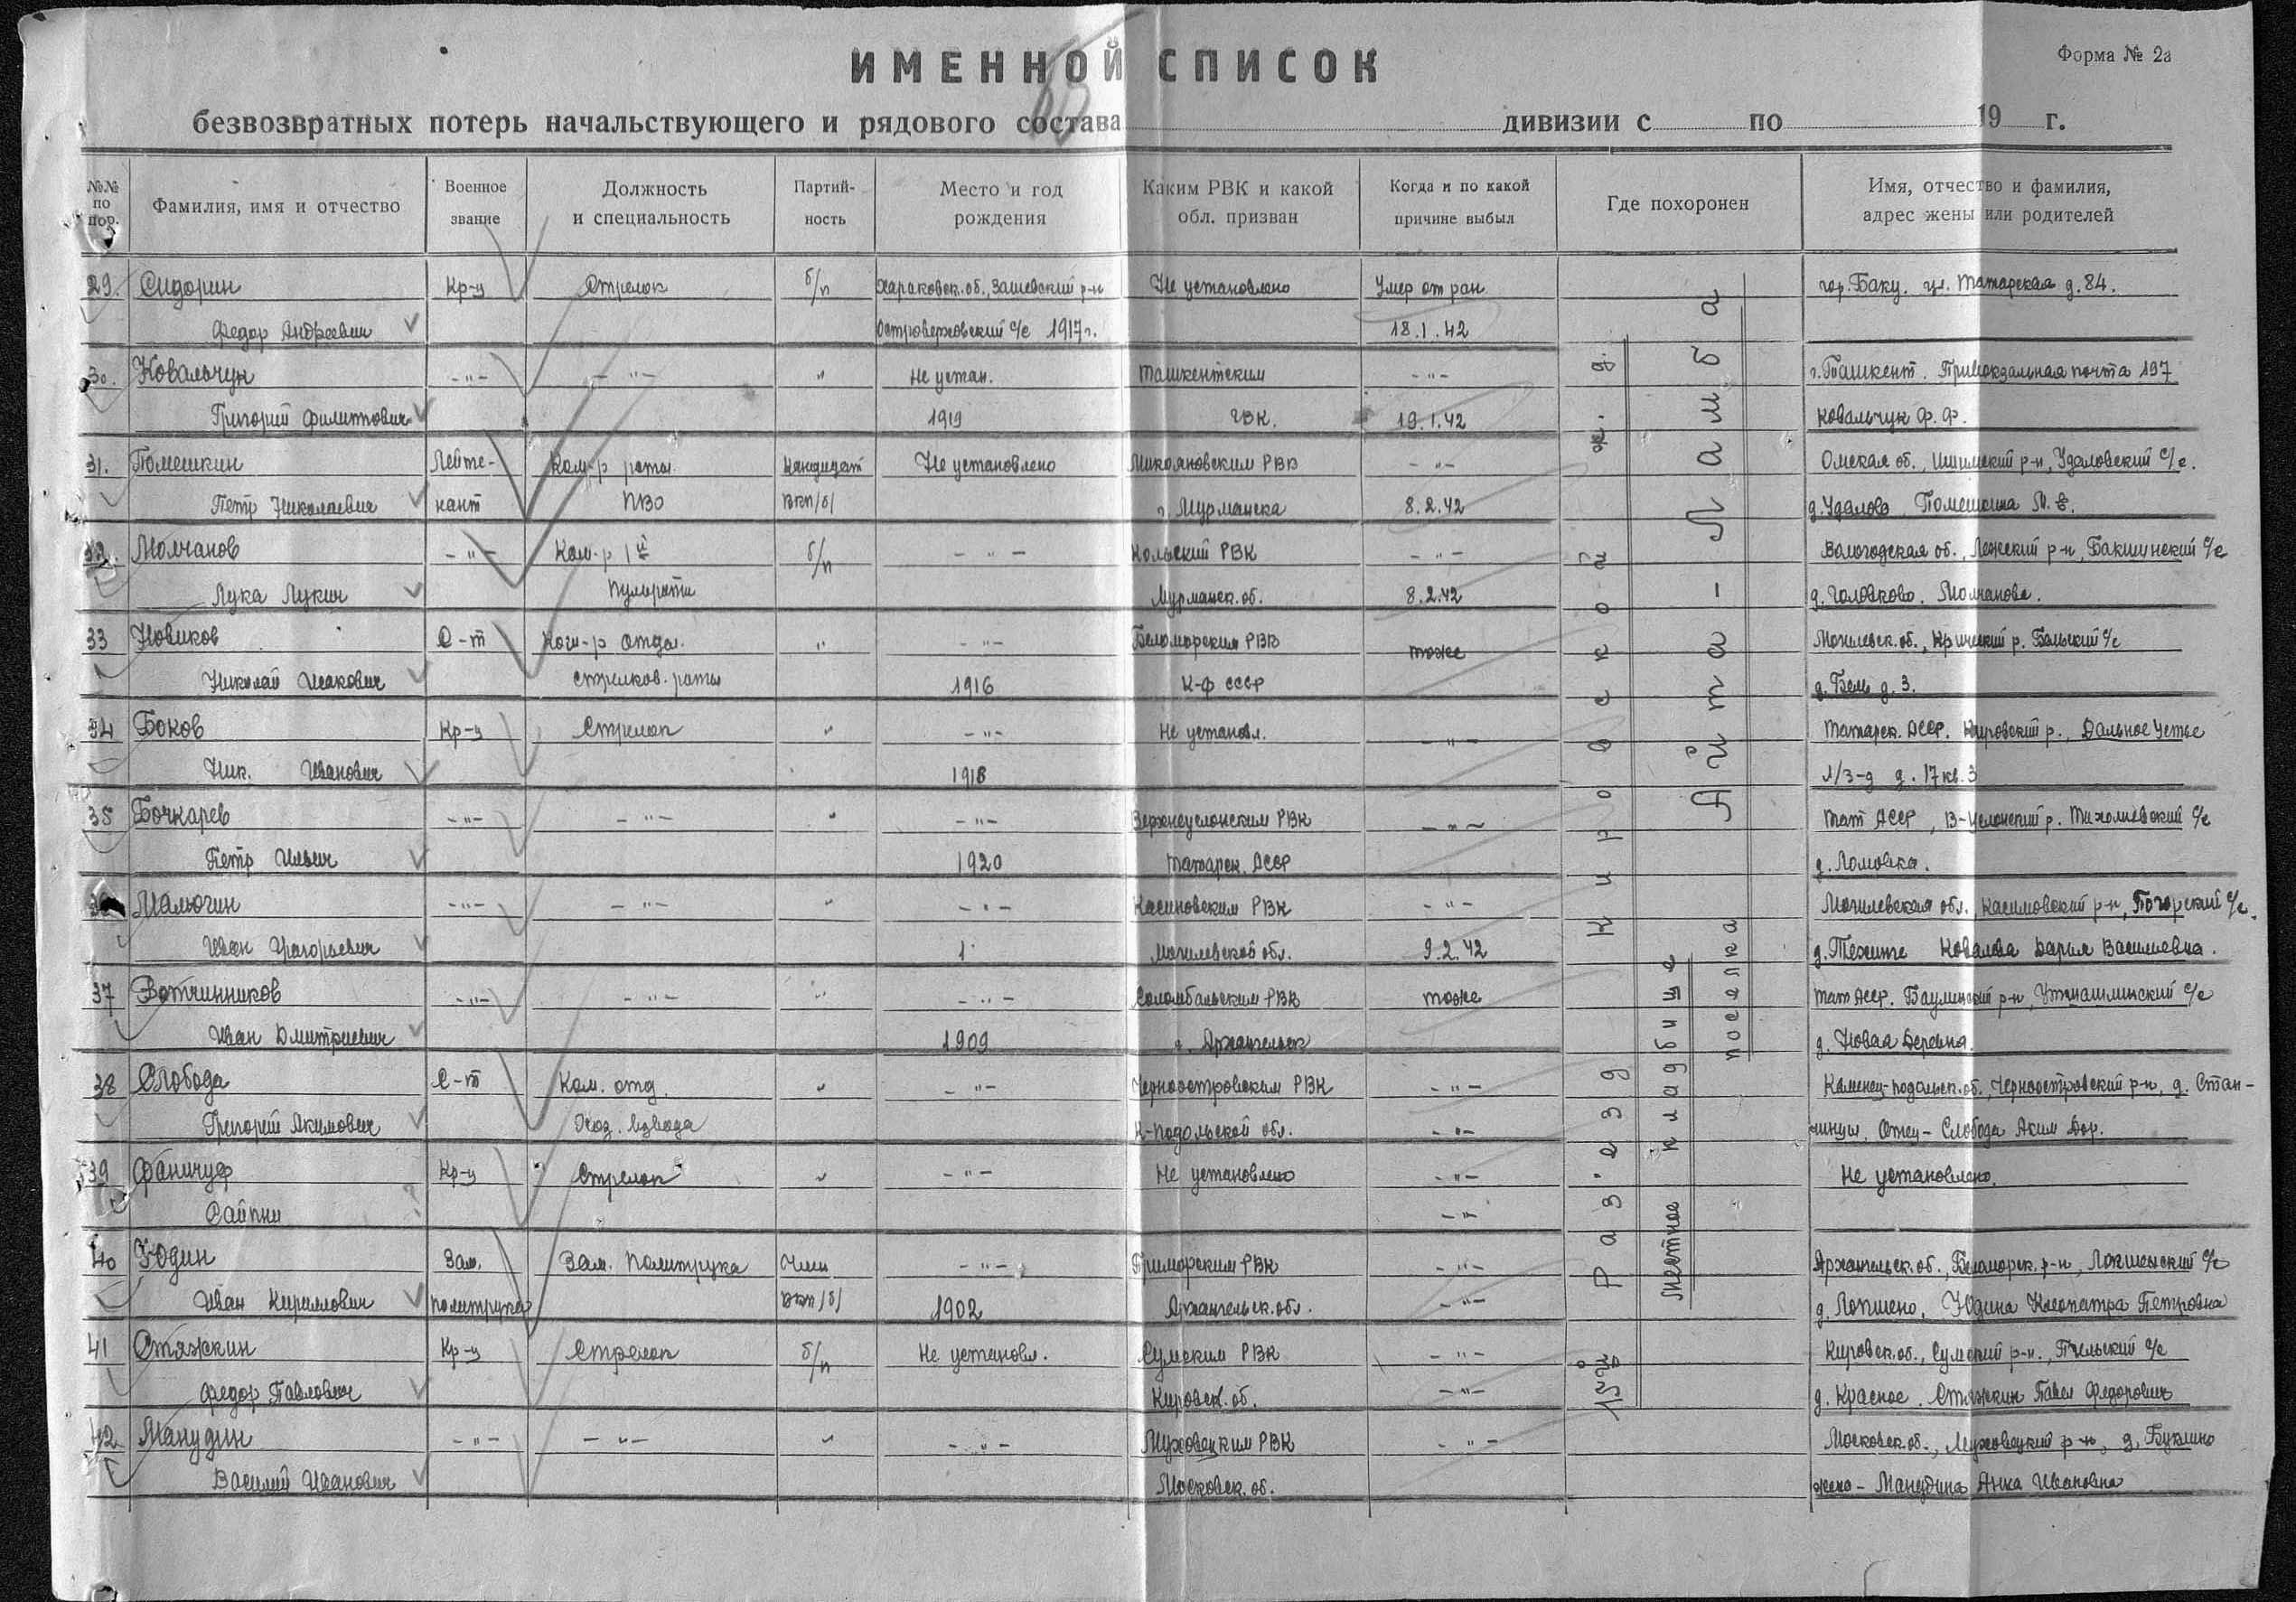 Форма № 2а
ИМЕННОЙ СПИСОК
безвозвратных потерь начальствующего и рядового состава дивизии с по 19 г.
№№ по пор. Фамилия, имя и отчество Военное звание Должность и специальность Партий-ность Место и год рождения Каким РВК и какой обл. призван Когда и по какой причине выбыл Где похоронен Имя, отчество и фамилия, адрес жены или родителей
29. Сидорин Кр-ц Стрелок б/п Не установлено Умер от ран гор. Баку. ул. Татарская д. 84.
Федор Андреевич с/с 1917 г. 18.1.42
30. Ковальчук -"- -"- " Не устан. Ташкентским -"- г. Ташкент. Привокзальная почта 197
Григорий 1919 ГВК. 19.1.42 Ковальчук Ф. Ф.
31. Помешкин Лейте- Ком-р роты Кандидат Не установлено РВК -"- Омская об., Ишимский р-н, Удаловский с/с.
Петр Николаевич нант ПВО ВКП/б/ г. Мурманска 8.2.42 д. Удалово
32. Молчанов -"- Ком-р 1й б/п -"- Кольский РВК -"- Вологодская об.,
Лука Лукич Пульроты Мурманск. об. 8.2.42 д. Головково. Молчанова.
33 Новиков С-т Ком-р отдел. " -"- Беломорским РВК тоже Могилевск. об.,
Николай Исакович стрелков. роты 1916 К-Ф ССР д. Бель д. 3.
34 Боков Кр-ц Стрелок " -"- Не установл. -"- Татарск. АССР. Кировский р., Дальнее Устье
Ник. Иванович 1918 Л/З-д д. 17 кв. 3
35 Бочкарев -"- -"- " -"- Верхнеуслонским РВК -"- Тат АССР, В-Услонский р.
Петр Ильич 1920 Татарск. АССР д. Ломовка.
36 Малюгин -"- -"- " -"- РВК -"- Могилевская обл.
Иван Григорьевич 1 Могилевской обл. 9.2.42 Ковалева Дарья Васильевна.
37 Вотчинников -"- -"- " -"- Соломбальским РВК тоже Тат АССР.
Иван Дмитриевич 1909 г. Архангельск д. Новая Деревня.
38 Слобода С-т Ком. отд. " -"- Черноостровским РВК -"- Каменец-подольск. об., Черноостровский р-н, д. Стан-
Григорий Якимович Хоз. взвода К-подольской обл. -"- Слобода Аким
39 Кр-ц Стрелок " -"- Не установлено -"- Не установлено.
? -"-
40 Юдин Зам. Зам. Политрука Член -"- Приморским РВК -"- Архангельск. об., Беломорск. р-н,
Иван Кириллович политрука ВКП/б/ 1902 Архангельск. обл. -"- Юдина Клеопатра Петровна
41 Стяжкин Кр-ц Стрелок б/п Не установл. РВК -"- Кировск. об.,
Федор Павлович Кировск. об. -"- д. Красное. Стяжкин Павел Федорович
42 Манудин -"- -"- " -"- РВК -"- Московск. об.,
Василий Иванович Московск. об. жена - Манудина Анна Ивановна
Раз'езд Кировской ж. д.
местное кладбище
поселка
Лайта - Ламба